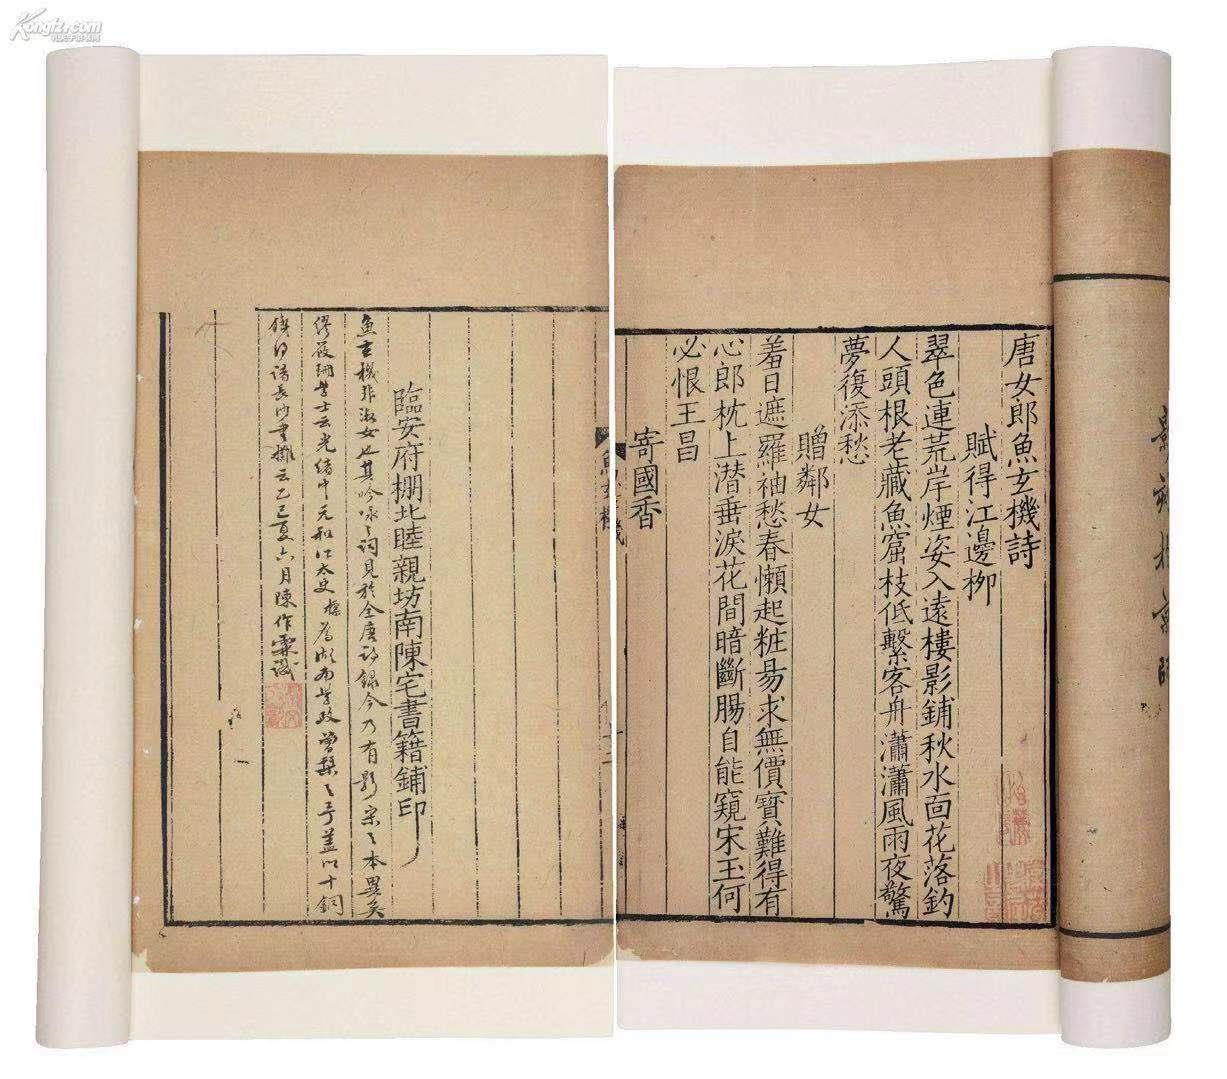 Kongfz.com
唐女郎魚玄機詩
賦得江邊柳
翠色連荒岸煙姿入遠樓影鋪秋水面花落釣
人頭根老藏魚窟枝低繫客舟瀟瀟風雨夜驚
夢復添愁
贈鄰女
羞日遮羅袖愁春懶起粧易求無價寶難得有
心郎枕上潛垂淚花間暗斷腸自能窺宋玉何
必恨王昌
寄國香
魚玄機
臨安府棚北睦親坊南陳宅書籍鋪印
魚玄機非淑女也其吟咏之詞見於全唐詩錄今乃有影宋之本異矣
繆筱珊學士云光緒中元和江太史標為湖南學政曾槧之予蓋以十銅
己巳夏六月陳作霖識